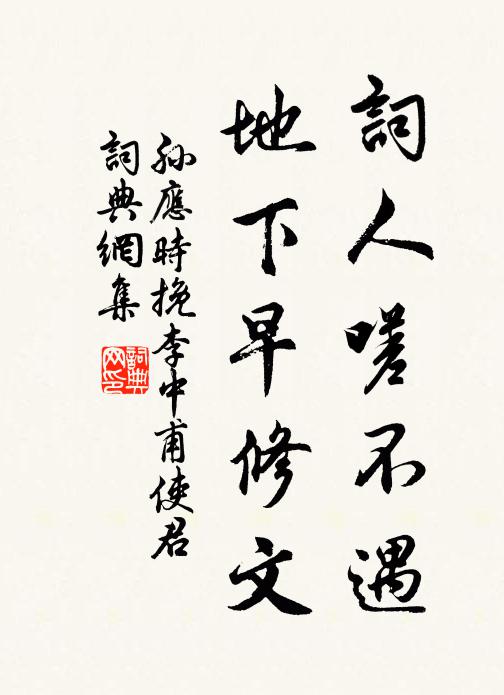 詞人嗟不遇
地下早修文
孫應時挽李中甫使君
詞典網集
詞典網印